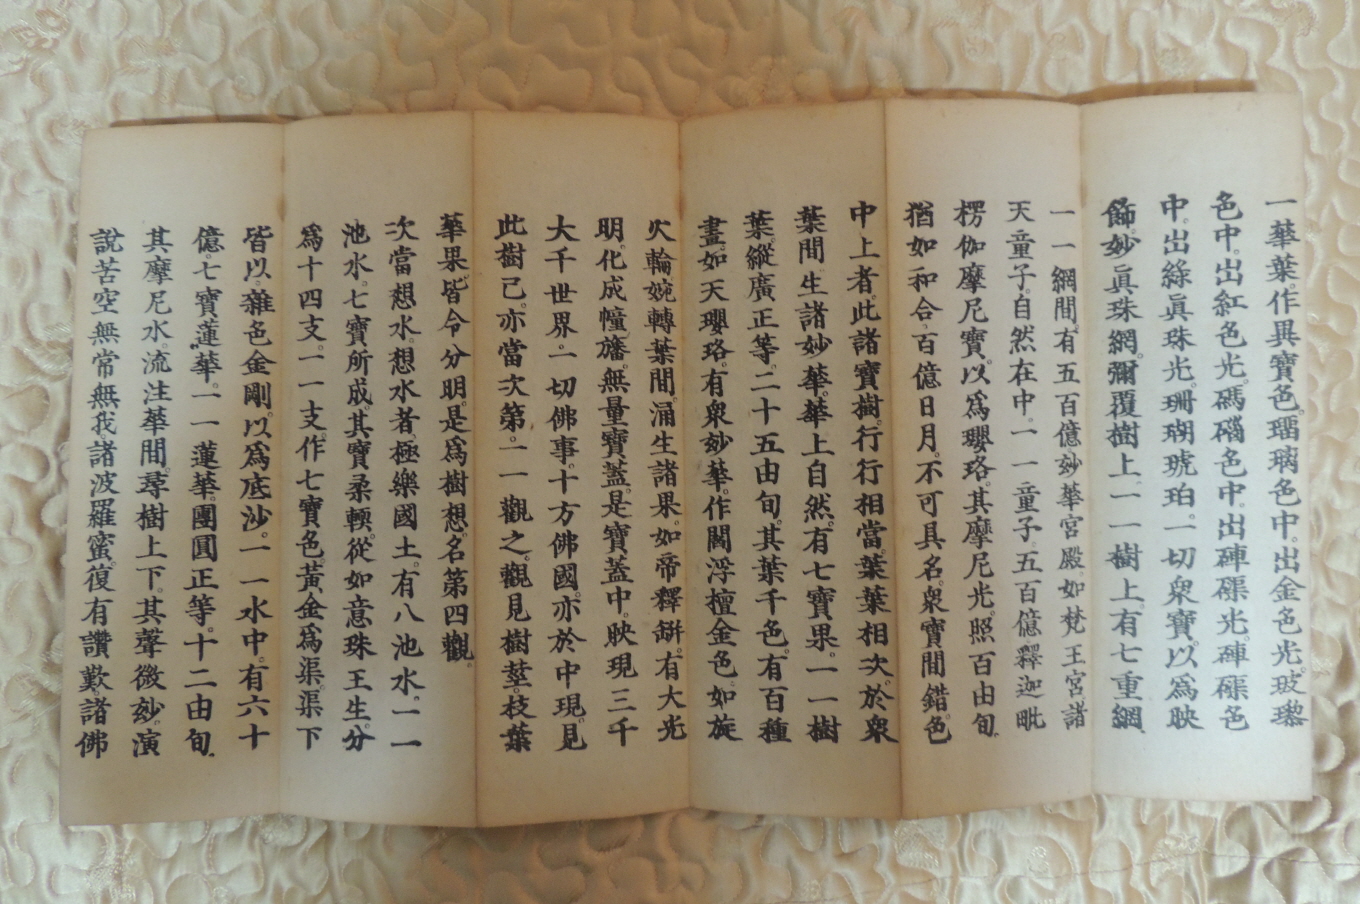 一華葉。作異寶色。瑠璃色中。出金色光。玻瓈
色中。出紅色光。碼碯色中。出硨磲光。硨磲色
中。出綠眞珠光。珊瑚琥珀。一切衆寶。以爲映
飾。妙眞珠網。彌覆樹上。一一樹上。有七重網。
一一網間。有五百億妙華宮殿。如梵王宮。諸
天童子。自然在中。一一童子。五百億。釋迦毗
楞伽摩尼寶。以爲瓔珞。其摩尼光。照百由旬。
猶如和合。百億日月。不可具名。衆寶間錯。色
中上者。此諸寶樹。行行相當。葉葉相次。於衆
葉間。生諸妙華。華上自然。有七寶果。一一樹
葉。縱廣正等。二十五由旬。其葉千色。有百種
畫。如天瓔珞。有衆妙華。作閻浮檀金色。如旋
火輪。婉轉葉間。涌生諸果。如帝釋缾。有大光
明。化成幢旛。無量寶蓋。是寶蓋中。映現三千
大千世界。一切佛事。十方佛國。亦於中現。見
此樹已。亦當次第。一一觀之。觀見樹莖。枝葉
華果。皆令分明。是爲樹想。名第四觀。
次當想水。想水者。極樂國土。有八池水。一一
池水。七寶所成。其寶柔輭。從如意珠王生。分
爲十四支。一一支。作七寶色。黃金爲渠。渠下
皆以。雜色金剛。以爲底沙。一一水中。有六十
億。七寶蓮華。一一蓮華。團圓正等。十二由旬。
其摩尼水。流注華間。尋樹上下。其聲微妙。演
說苦空無常無我。諸波羅蜜。復有讚歎。諸佛